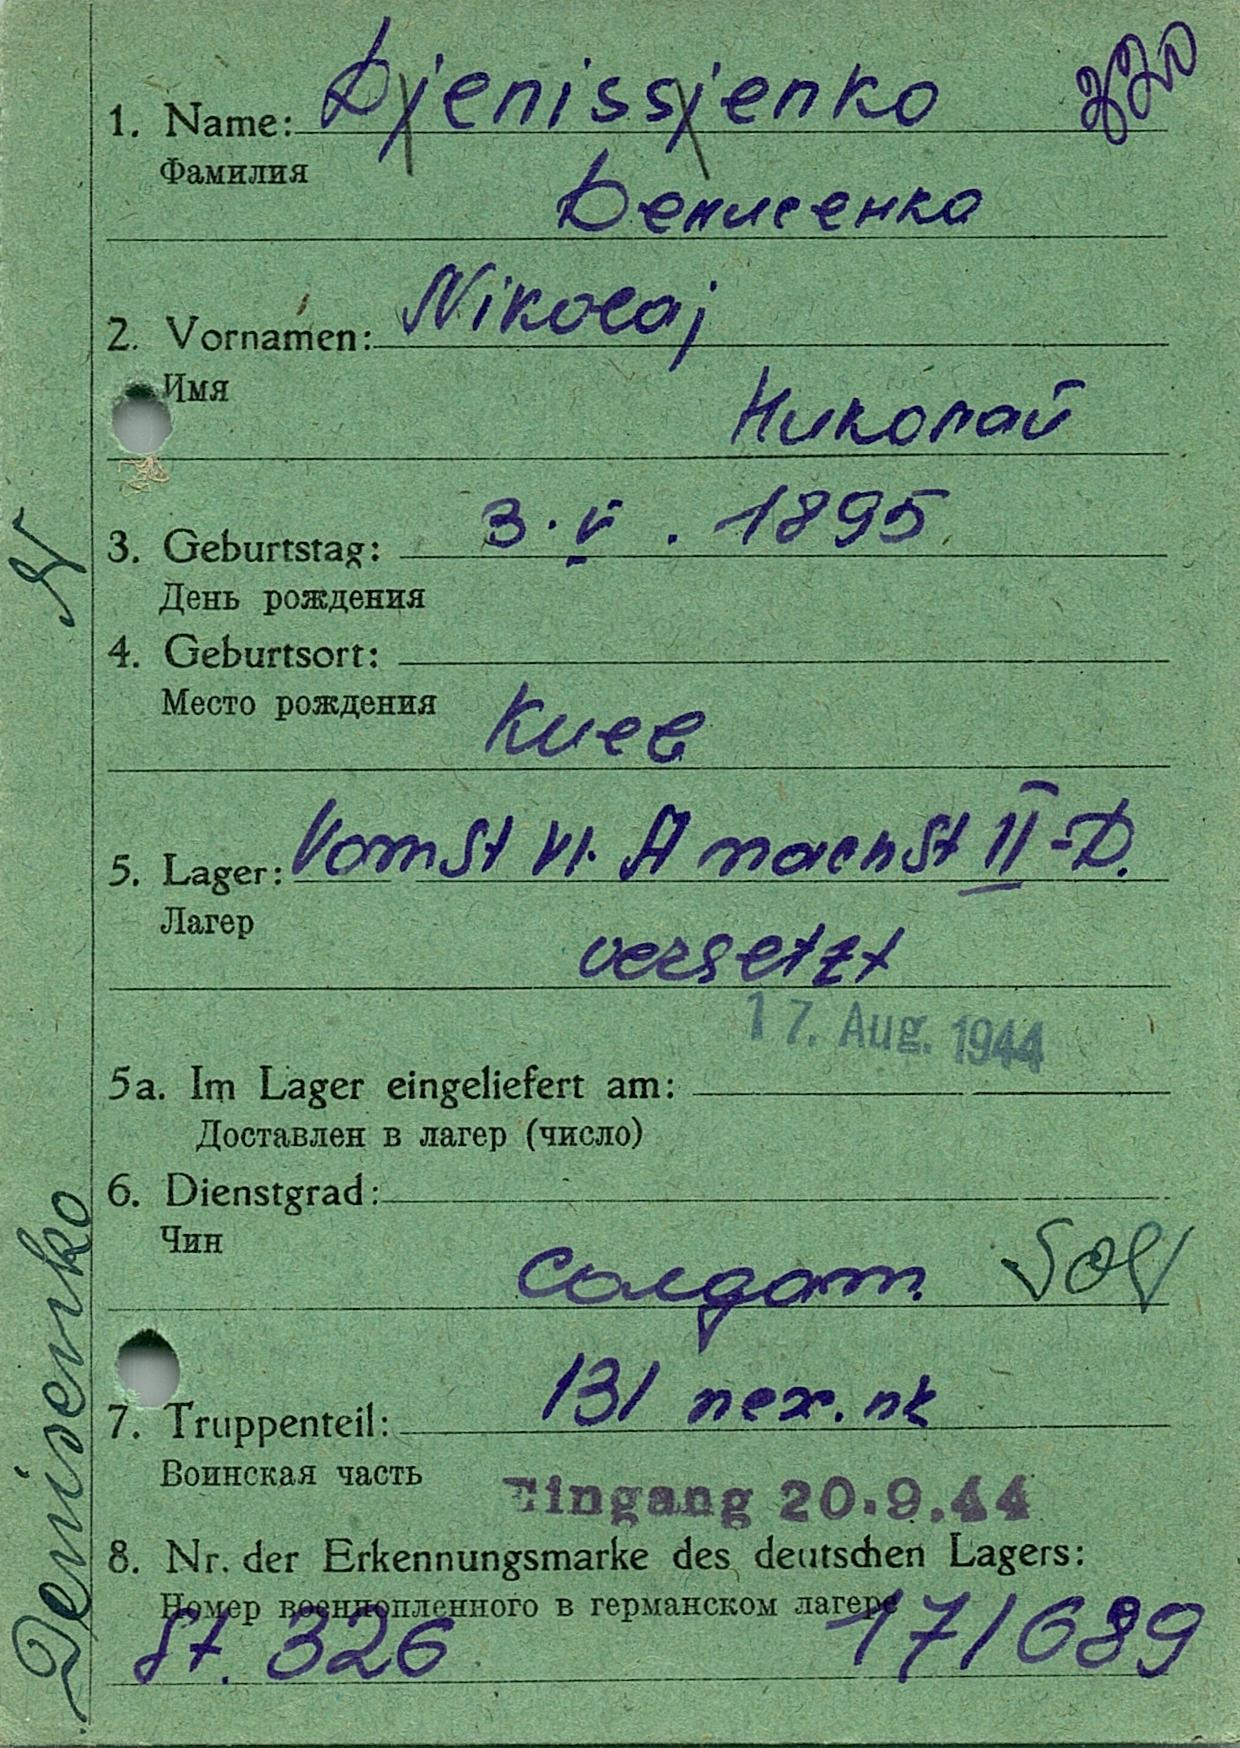 1. Name: Djenissjenko 220
Фамилия
Денисенко
2. Vornamen: Nikolaj
Имя
Николай
3. Geburtstag: 3. V. 1895
День рождения
4. Geburtsort:
Место рождения
Киев
5. Lager: Vom St VI. A nach St II-D.
Лагер
versetzt
17. Aug. 1944
5a. Im Lager eingeliefert am:
Доставлен в лагер (число)
6. Dienstgrad:
Чин
Солдат. Sol
7. Truppenteil: 131 пех. пк
Воинская часть
Eingang 20.9.44
8. Nr. der Erkennungsmarke des deutschen Lagers:
Номер военнопленного в германском лагере
St. 326 171689
Denisenko